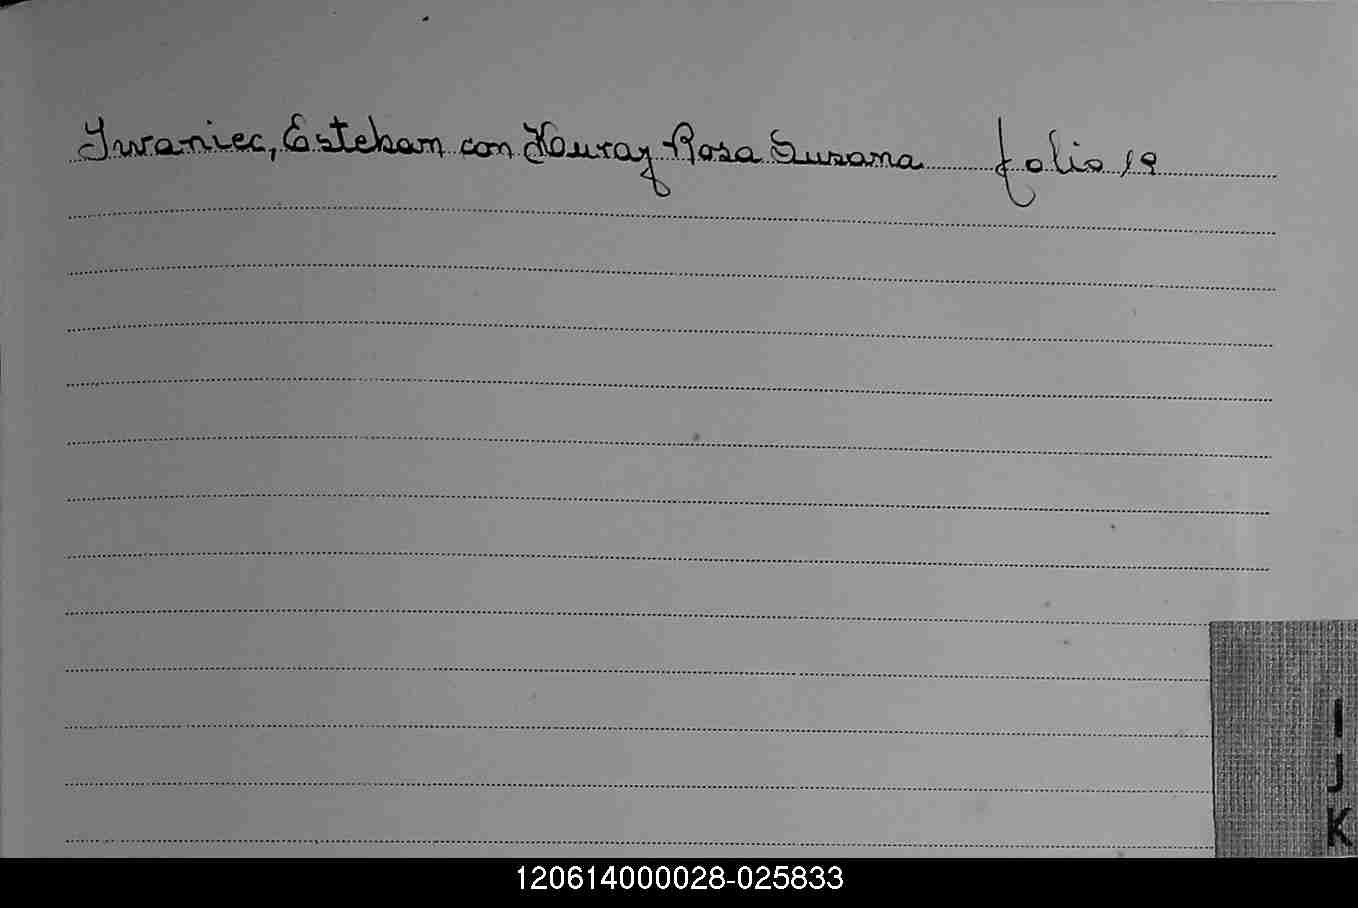 Iwaniec, Esteban con Kouray Rosa Susana folio 19
I
J
K
120614000028-025833